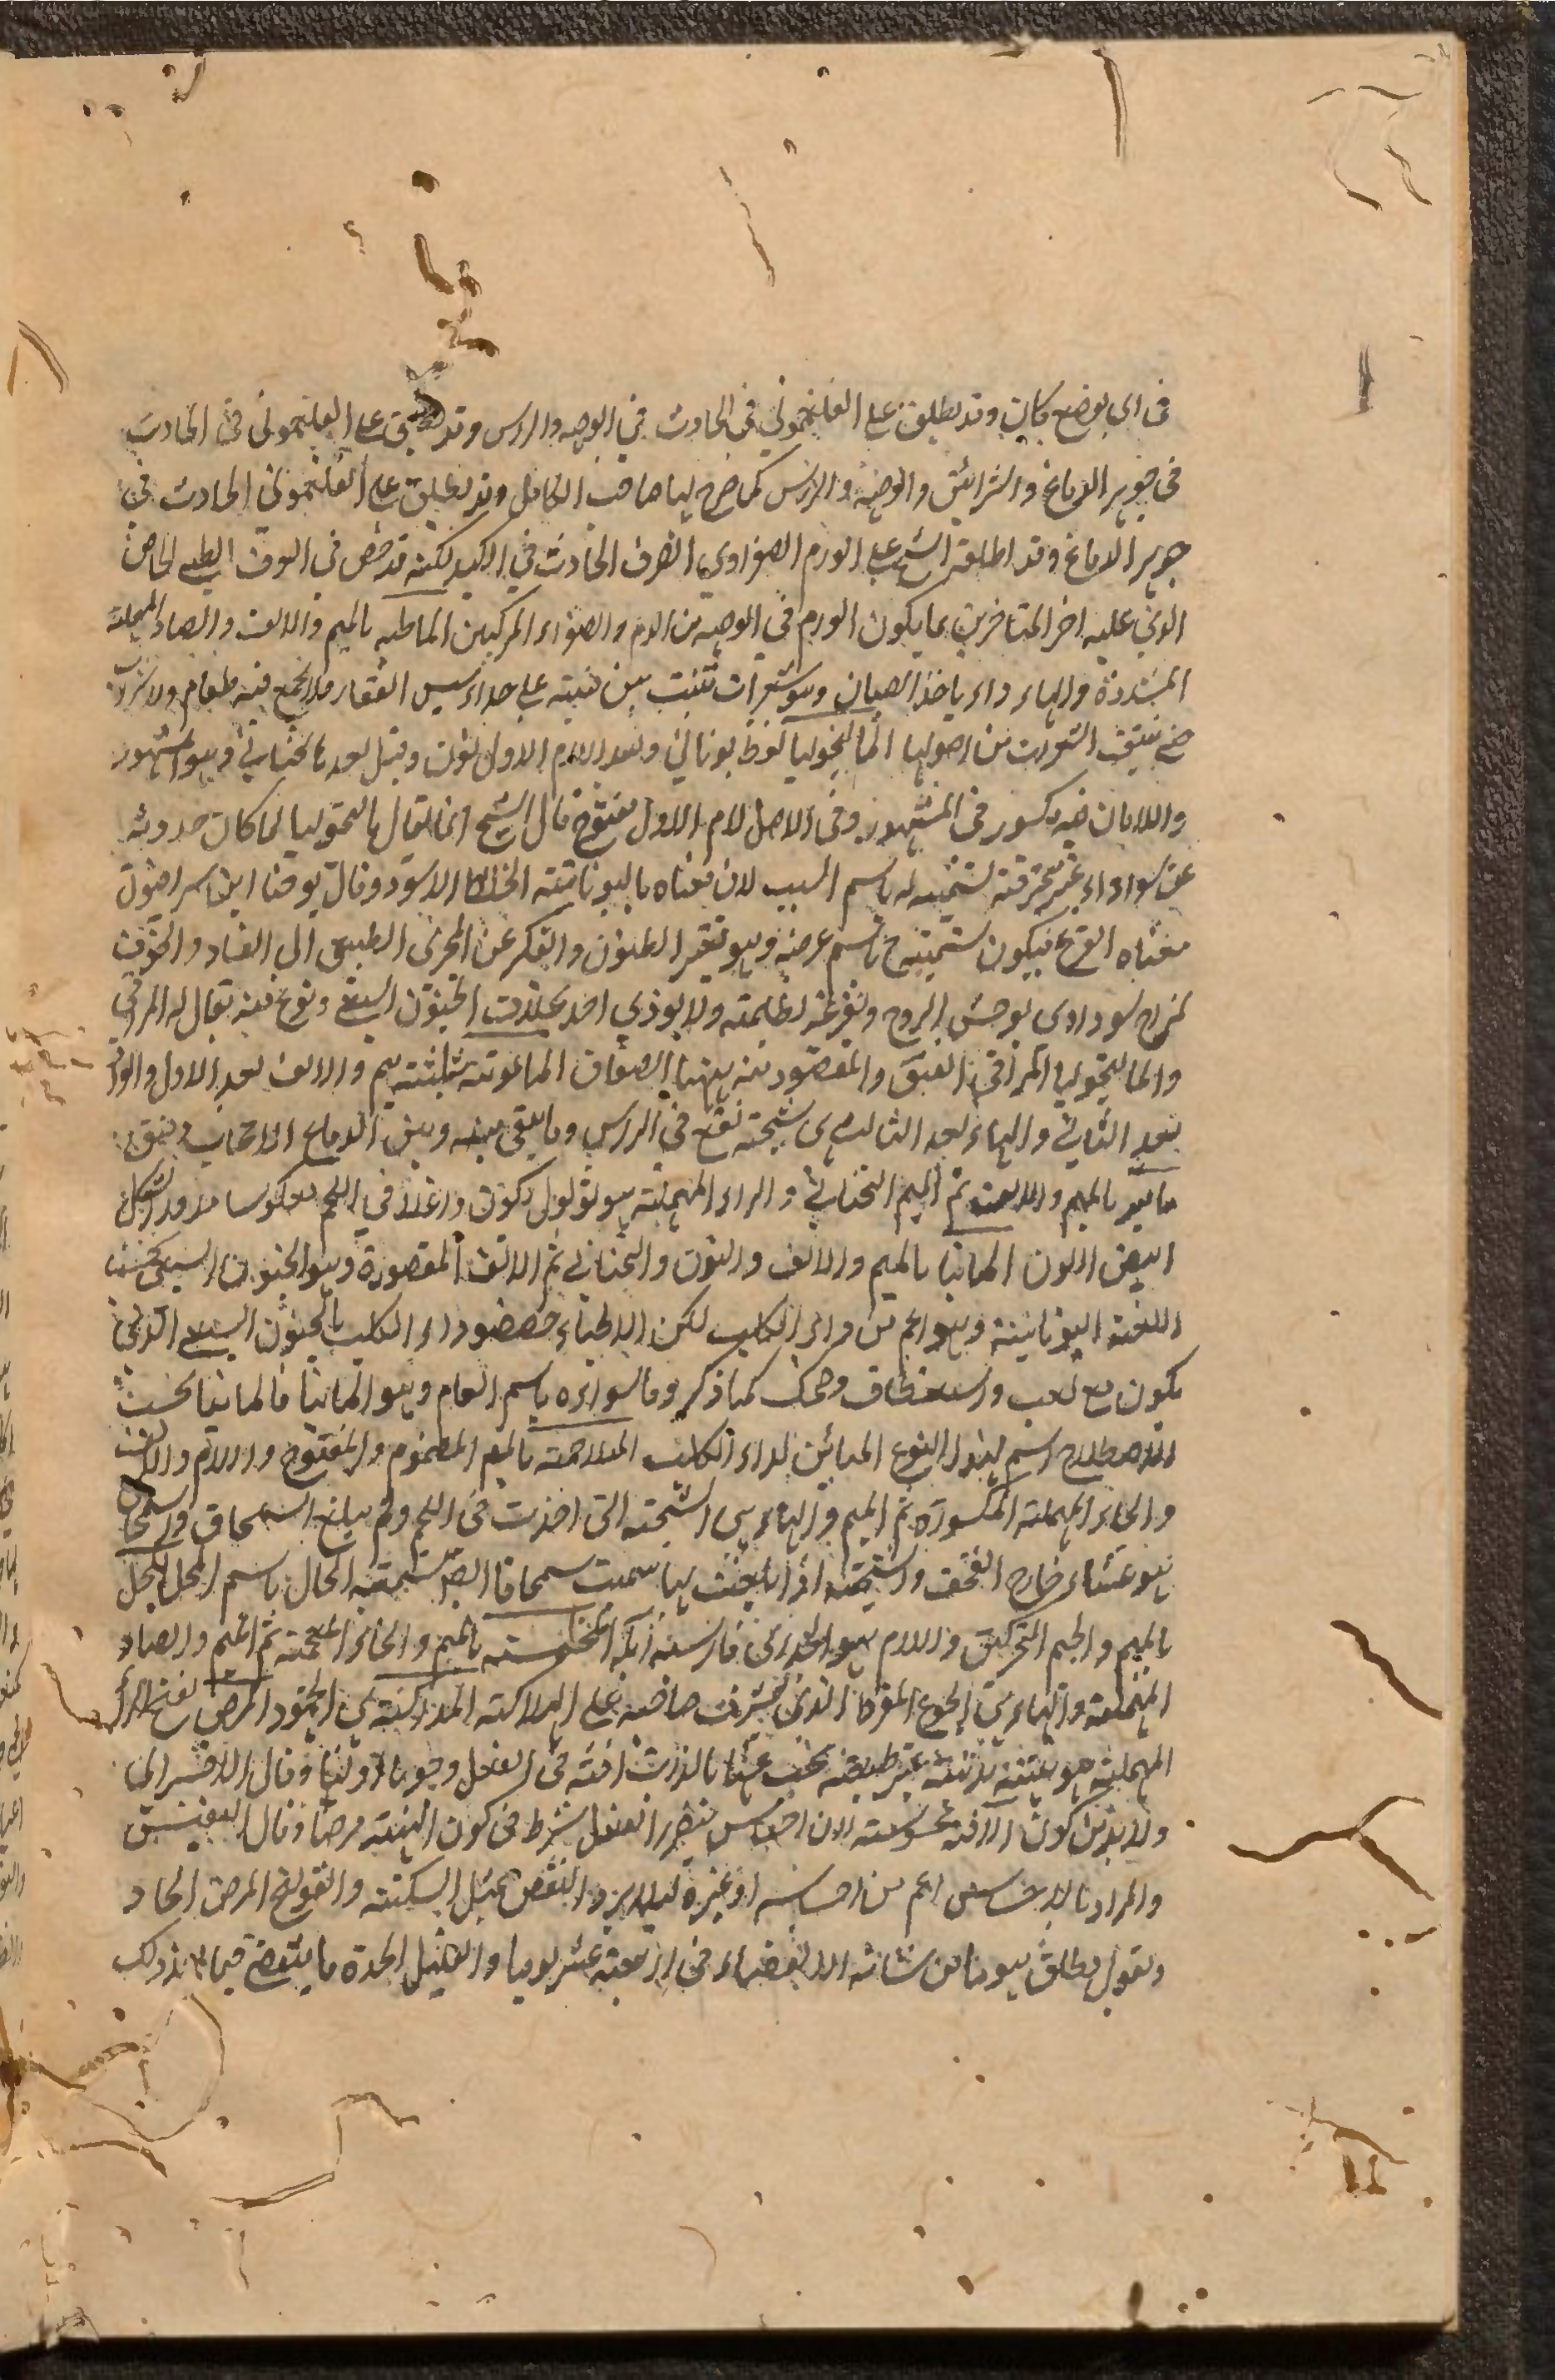 فى اى موضع كان وقد يطلق على الفلغمونى فى الحادث فى الوجه والراس وقد يطلق على الفلغمونى فى الحادث
فى جوهر الدماغ والشرائين والوجه والراس كما صرح بها صاحب الكامل وقد يطلق على الفلغمونى الحادث فى
جوهر الدماغ وقد اطلقه الشيخ على الورم الصفراوى الصرف الحادث فى الكبد لكنه قد خص فى العرف الطبى الخاص
الذى عليه اخر المتاخرين بما يكون الورم فى الوجه من الدم والصفراء المركبين الماطبه بالميم والالف والصاد المهملة
المشددة والهاء داء ياخذ الصبيان وهو شعرات تنبت بين على حذاء الفقار فلا ينجع فيه طعام ولا شراب
حتى تنتف الشعرات من اصولها الماليخوليا لفظ يونانى وبعد اللام الاول نون وقيل بعدها تحتانى وهو المشهور
واللامان فيه مكسور فى المشهور وفى الاصل لام الاول مفتوح قال الشيخ انما يقال ماليخوليا لما كان حدوثه
عن سوداء غير محترقة تسمية له باسم السبب لان معناه باليونانية الخلط الاسود وقال يوحنا ابن سرافيون
معناه الفزع فيكون تسميته ح باسم عرضه وهو تغير الظنون والفكر عن المجرى الطبيعى الى الفساد والخوف
لمزاج سوداوى يوحش الروح ويفزعه بظلمته ولا يوذى احد بخلاف الجنون السبعى ونوع منه يقال له المراقى
والماليخوليا المراقى والمقصود منه ههنا الصفاق المامومة مثلثة ميم والالف بعد الاول والواو
بعد الثانى والهاء بعد الثالث هى شجة تقع فى الراس وما يبقى بينه وبين الدماغ الا حجاب رقيق
بالميم والالف ثم الميم التحتانى والراء المهملة هو ثولول يكون داخلا فى اللحم معكوسا مدور الشكل
ابيض اللون المانيا بالميم والالف والنون والتحتانى ثم الالف المقصورة وهو الجنون السبعى بحسب
اللغة اليونانية وهو اعم من داء الكلب لكن الاطباء خصصوا داء الكلب بالجنون السبعى الذى
يكون مع لعب واستعطاف وضحك كما ذكر وما سواه باسم العام وهو المانيا فالمانيا بحسب
الاصطلاح اسم لهذا النوع المبائن لداء الكلب الملاحمة بالميم المضموم والمفتوح واللام والالف
والحاء المهملة المكسورة ثم الميم والهاء هى الشجة التى اخذت فى اللحم ولم يبلغ السمحاق والسمحاق
هو غشاء خارج القحف والشجة اذا بلغت لها سميت سمحاقا ايضا تسمية الحال باسم المحل المجل
بالميم والجيم المتحركين واللام هو فارسيه آبله المخمصة بالميم والخاء المعجمة ثم الميم والصاد
المهملة والهاء هى الجوع المفرط الذى يشرف صاحبه على الهلاكة المذاكنة هى الجمود المرض بفتح الراء
المهملة هو هيئة بدنية غير طبيعية يجب عنها بالذات آفة فى الفعل وجوبا اوليا وقال
ولا بد من كون الآفة محسوسة لان احساس ضرر الفعل شرط فى كون الهيئة مرضا وقال النفيسى
والمراد بالاحساس اعم من احساسه او غيره ليلا يرد النقض بمثل السكتة والقولنج المرض الحاد
وبقول مطلق هو ما من شانه الانقضاء فى اربعة عشر يوما والقليل الحدة ما ينقضى فيما بعد ذلك